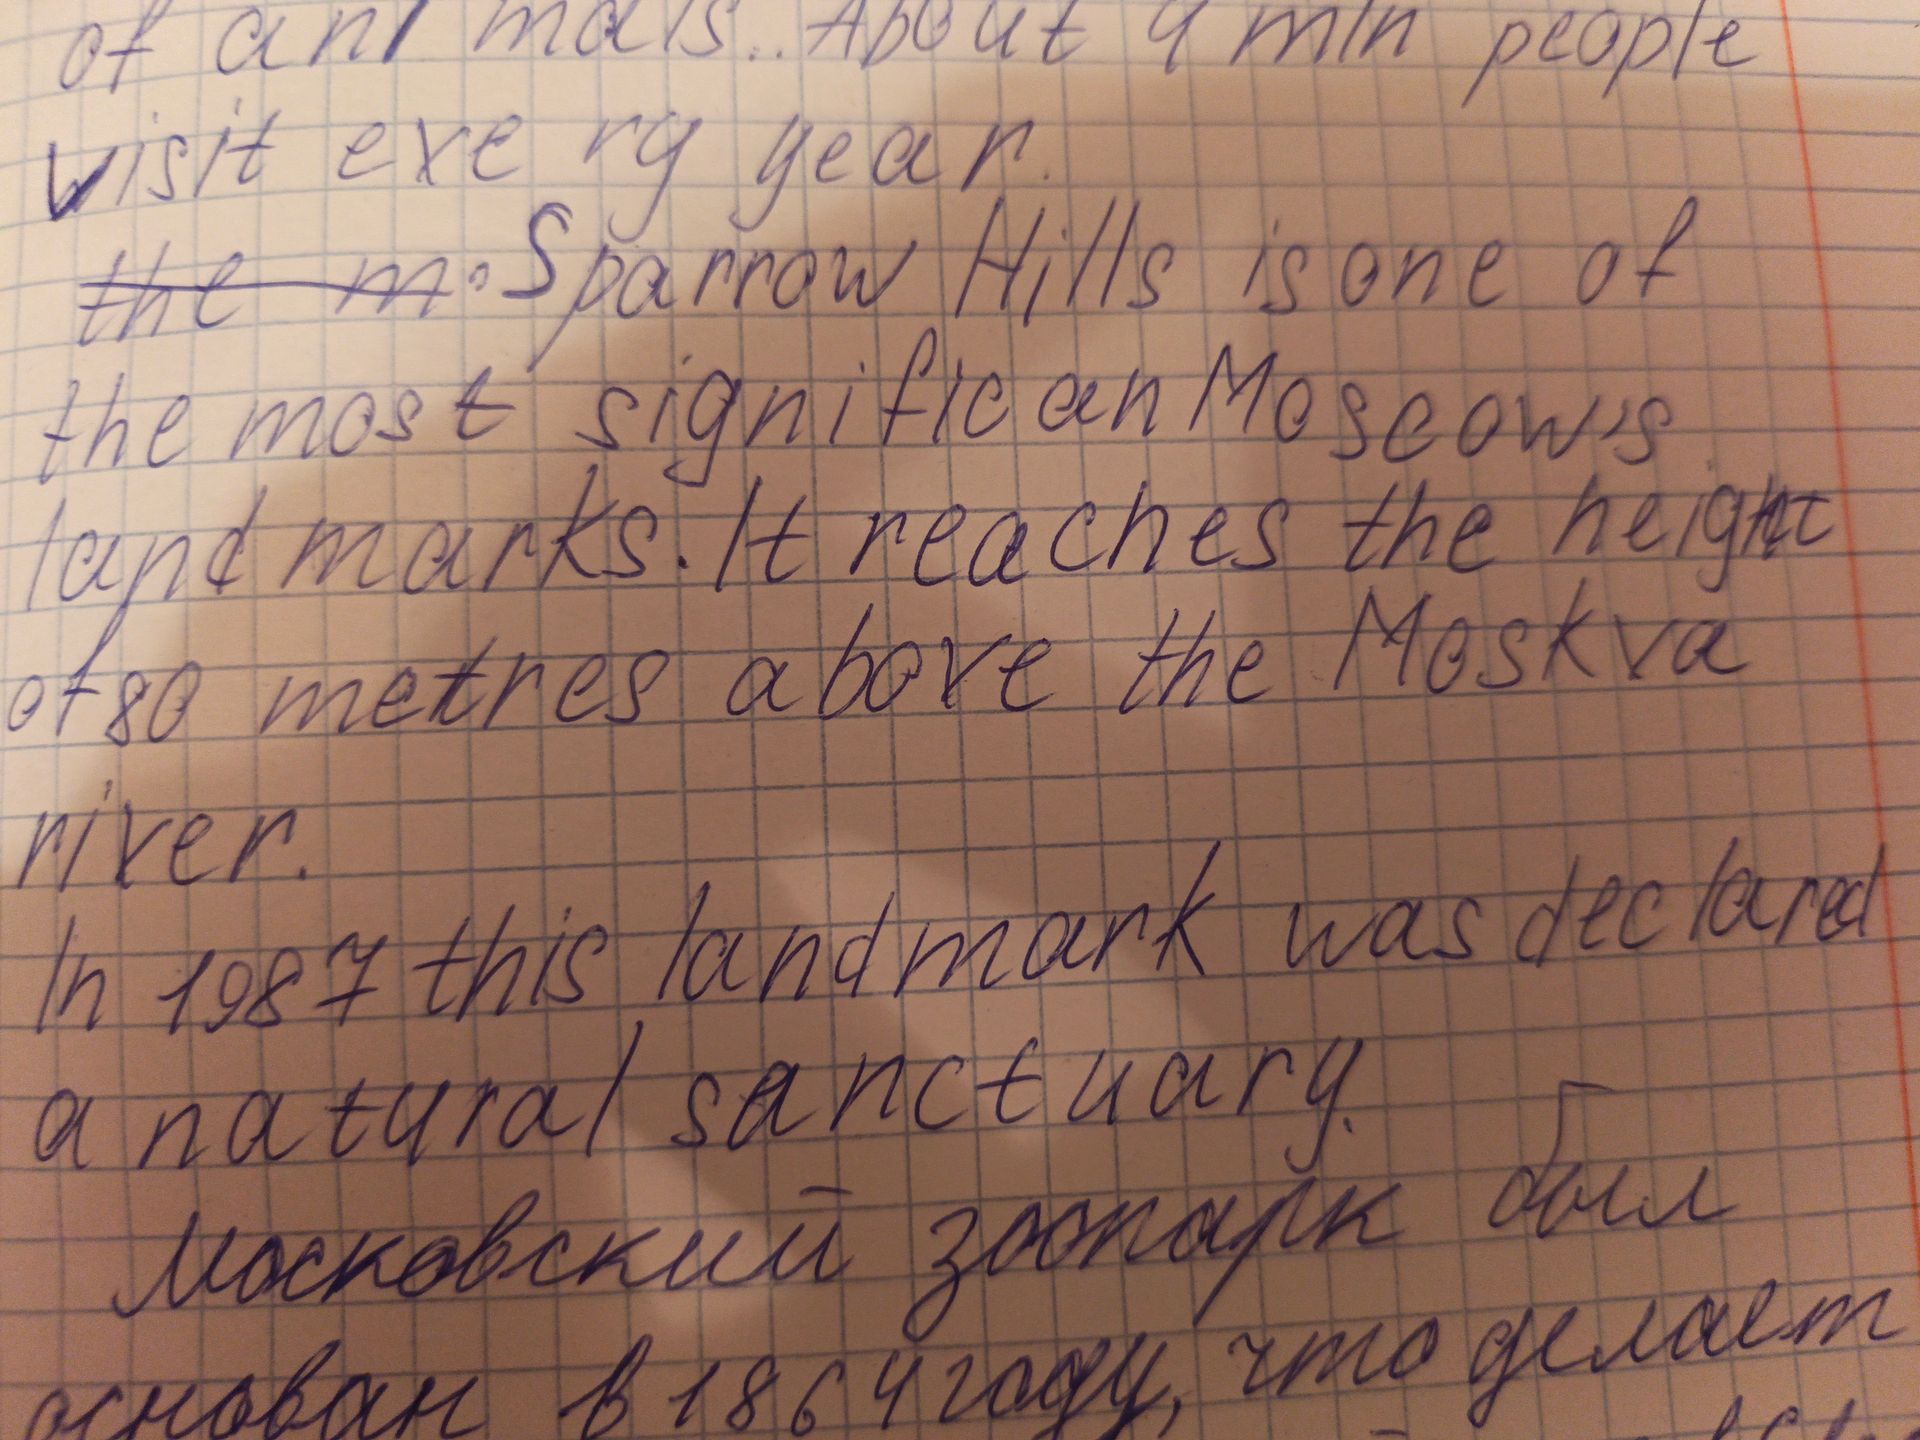 of animals.. About 4 mln people
visit every year.
the m. Sparrow Hills is one of
the most significan Moscow's
landmarks. It reaches the height
of 80 metres above the Moskva
river.
In 1987 this landmark was declared
a natural sanctuary.
Московский зоопарк был
основан в 1864 году, что делает